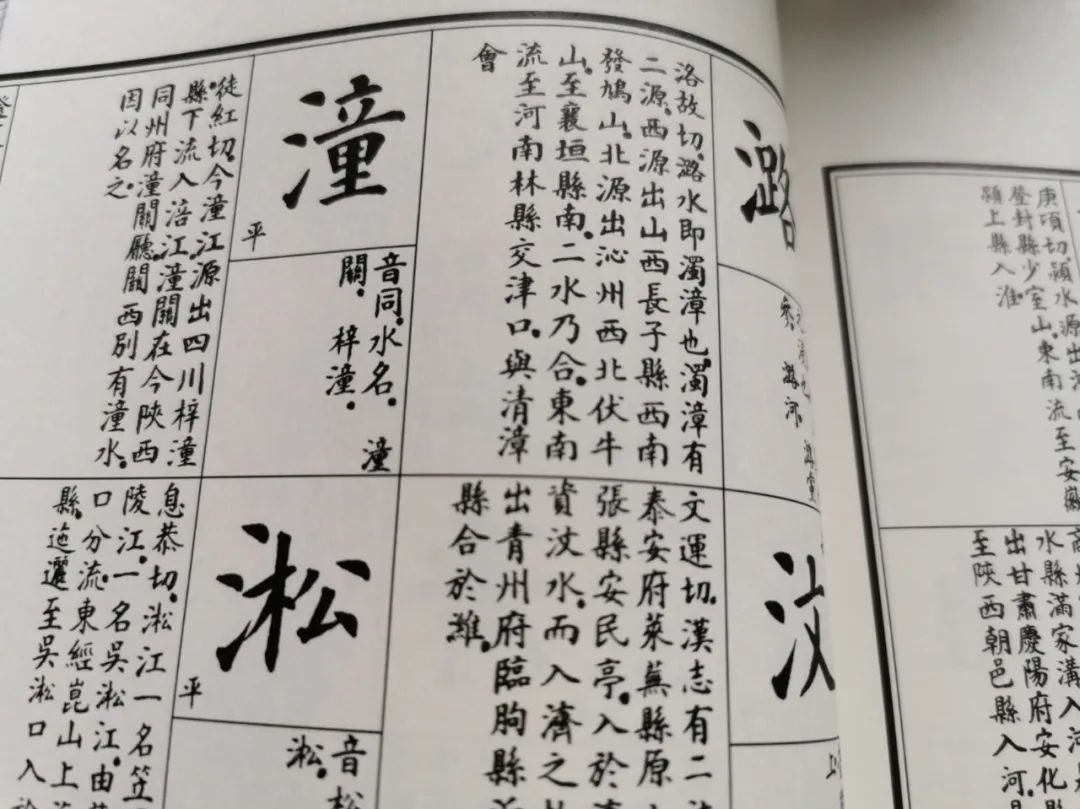 庚頃切。潁水源出河
登封縣少室山。東南流至安徽
潁上縣入淮。
水縣滿家溝入河
出甘肅慶陽府安化縣
至陝西朝邑縣入河。
潞
潞河。
洛故切。潞水即濁漳也。濁漳有
二源。西源出山西長子縣西南
發鳩山。北源出沁州西北伏牛
山。至襄垣縣南。二水乃合。東南
流至河南林縣交津口。與清漳
會
潼
平
音同。水名。潼
關。梓潼。
徒紅切。今潼江源出四川梓潼
縣。下流入涪江。潼關在今陝西
同州府潼關廳。關西別有潼水。
因以名之。
汶
文運切。漢志有二
泰安府萊蕪縣原
張縣安民亭。入於濟
資汶水。而入濟之
出青州府臨朐縣
縣合於濰。
淞
平
音松
淞。
息恭切。淞江一名笠
陵江。一名吳淞江。由
口分流。東經崑山上
縣。迤邐至吳淞口入於